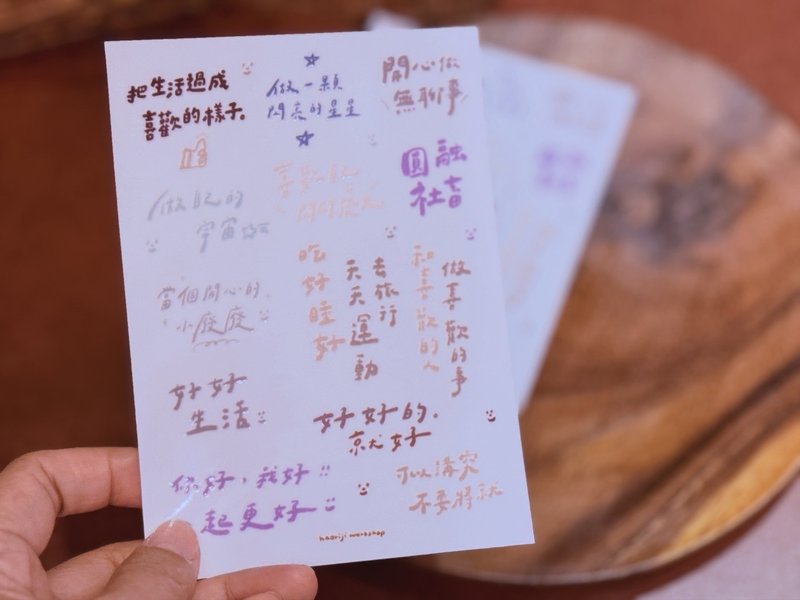 把生活過成
喜歡的樣子。
做一顆
閃亮的星星
開心做
無聊事
做自己的
宇宙
喜歡自己
圓融
社畜
當個開心的
小廢廢
吃好睡好
去旅行
天天運動
和喜歡的人
做喜歡的事
好好
生活
好好的.
就好
你好,我好
起更好
可以講究
不要將就
haoriji workshop